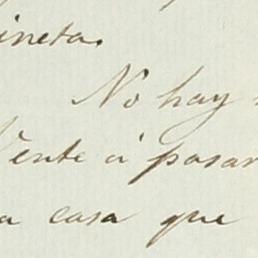 ineta.
No hay
Vente á pasar
a casa que